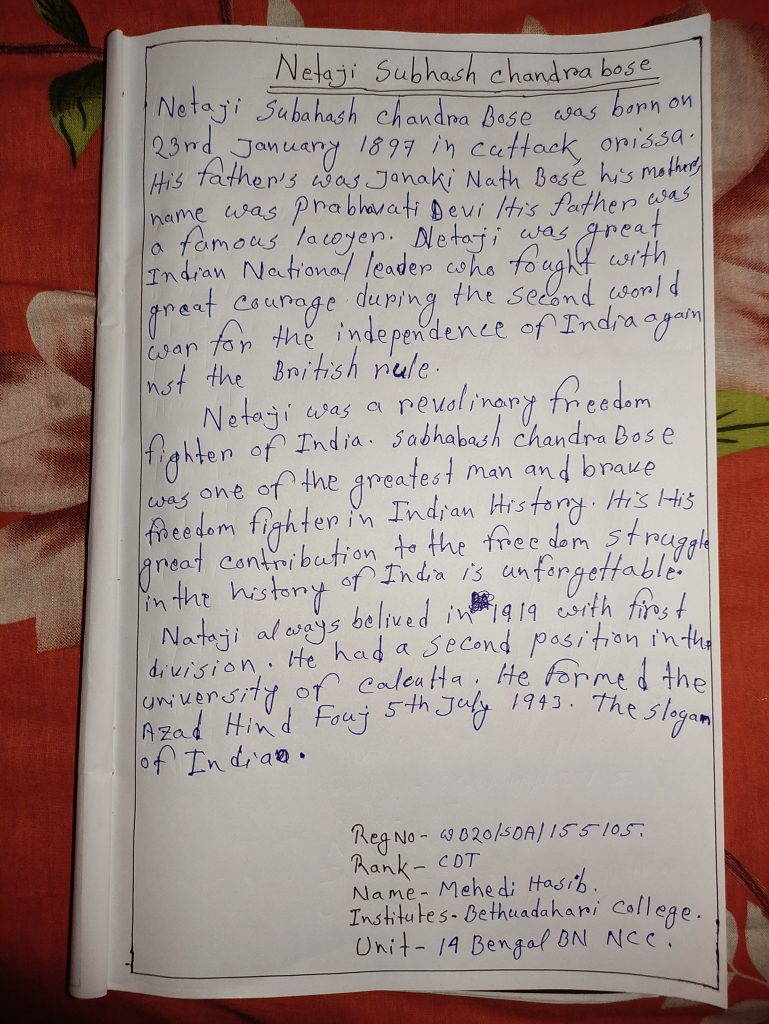 Netaji Subhash chandra bose
Netaji Subahash chandra Bose was born on
23rd January 1897 in cuttack, orissa.
His father's was Janaki Nath Bose his mother's
name was Prabhavati Devi His father was
a famous lawyer. Netaji was great
Indian National leader who fought with
great courage during the second world
war for the independence of India again
nst the British rule.
Netaji was a revolinary freedom
fighter of India. Sabhabash chandra Bose
was one of the greatest man and brave
freedom fighter in Indian History. His His
great contribution to the freedom struggle
in the history of India is unforgettable.
Nataji always belived in 1919 with first
division. He had a second position in the
university of calcutta. He formed the
Azad Hind Fouj 5th July 1943. The slogan
of India.
Reg No - WB20/SDA/155105.
Rank - CDT
Name - Mehedi Hasib.
Institutes - Bethuadahari College.
Unit - 14 Bengal BN NCC.